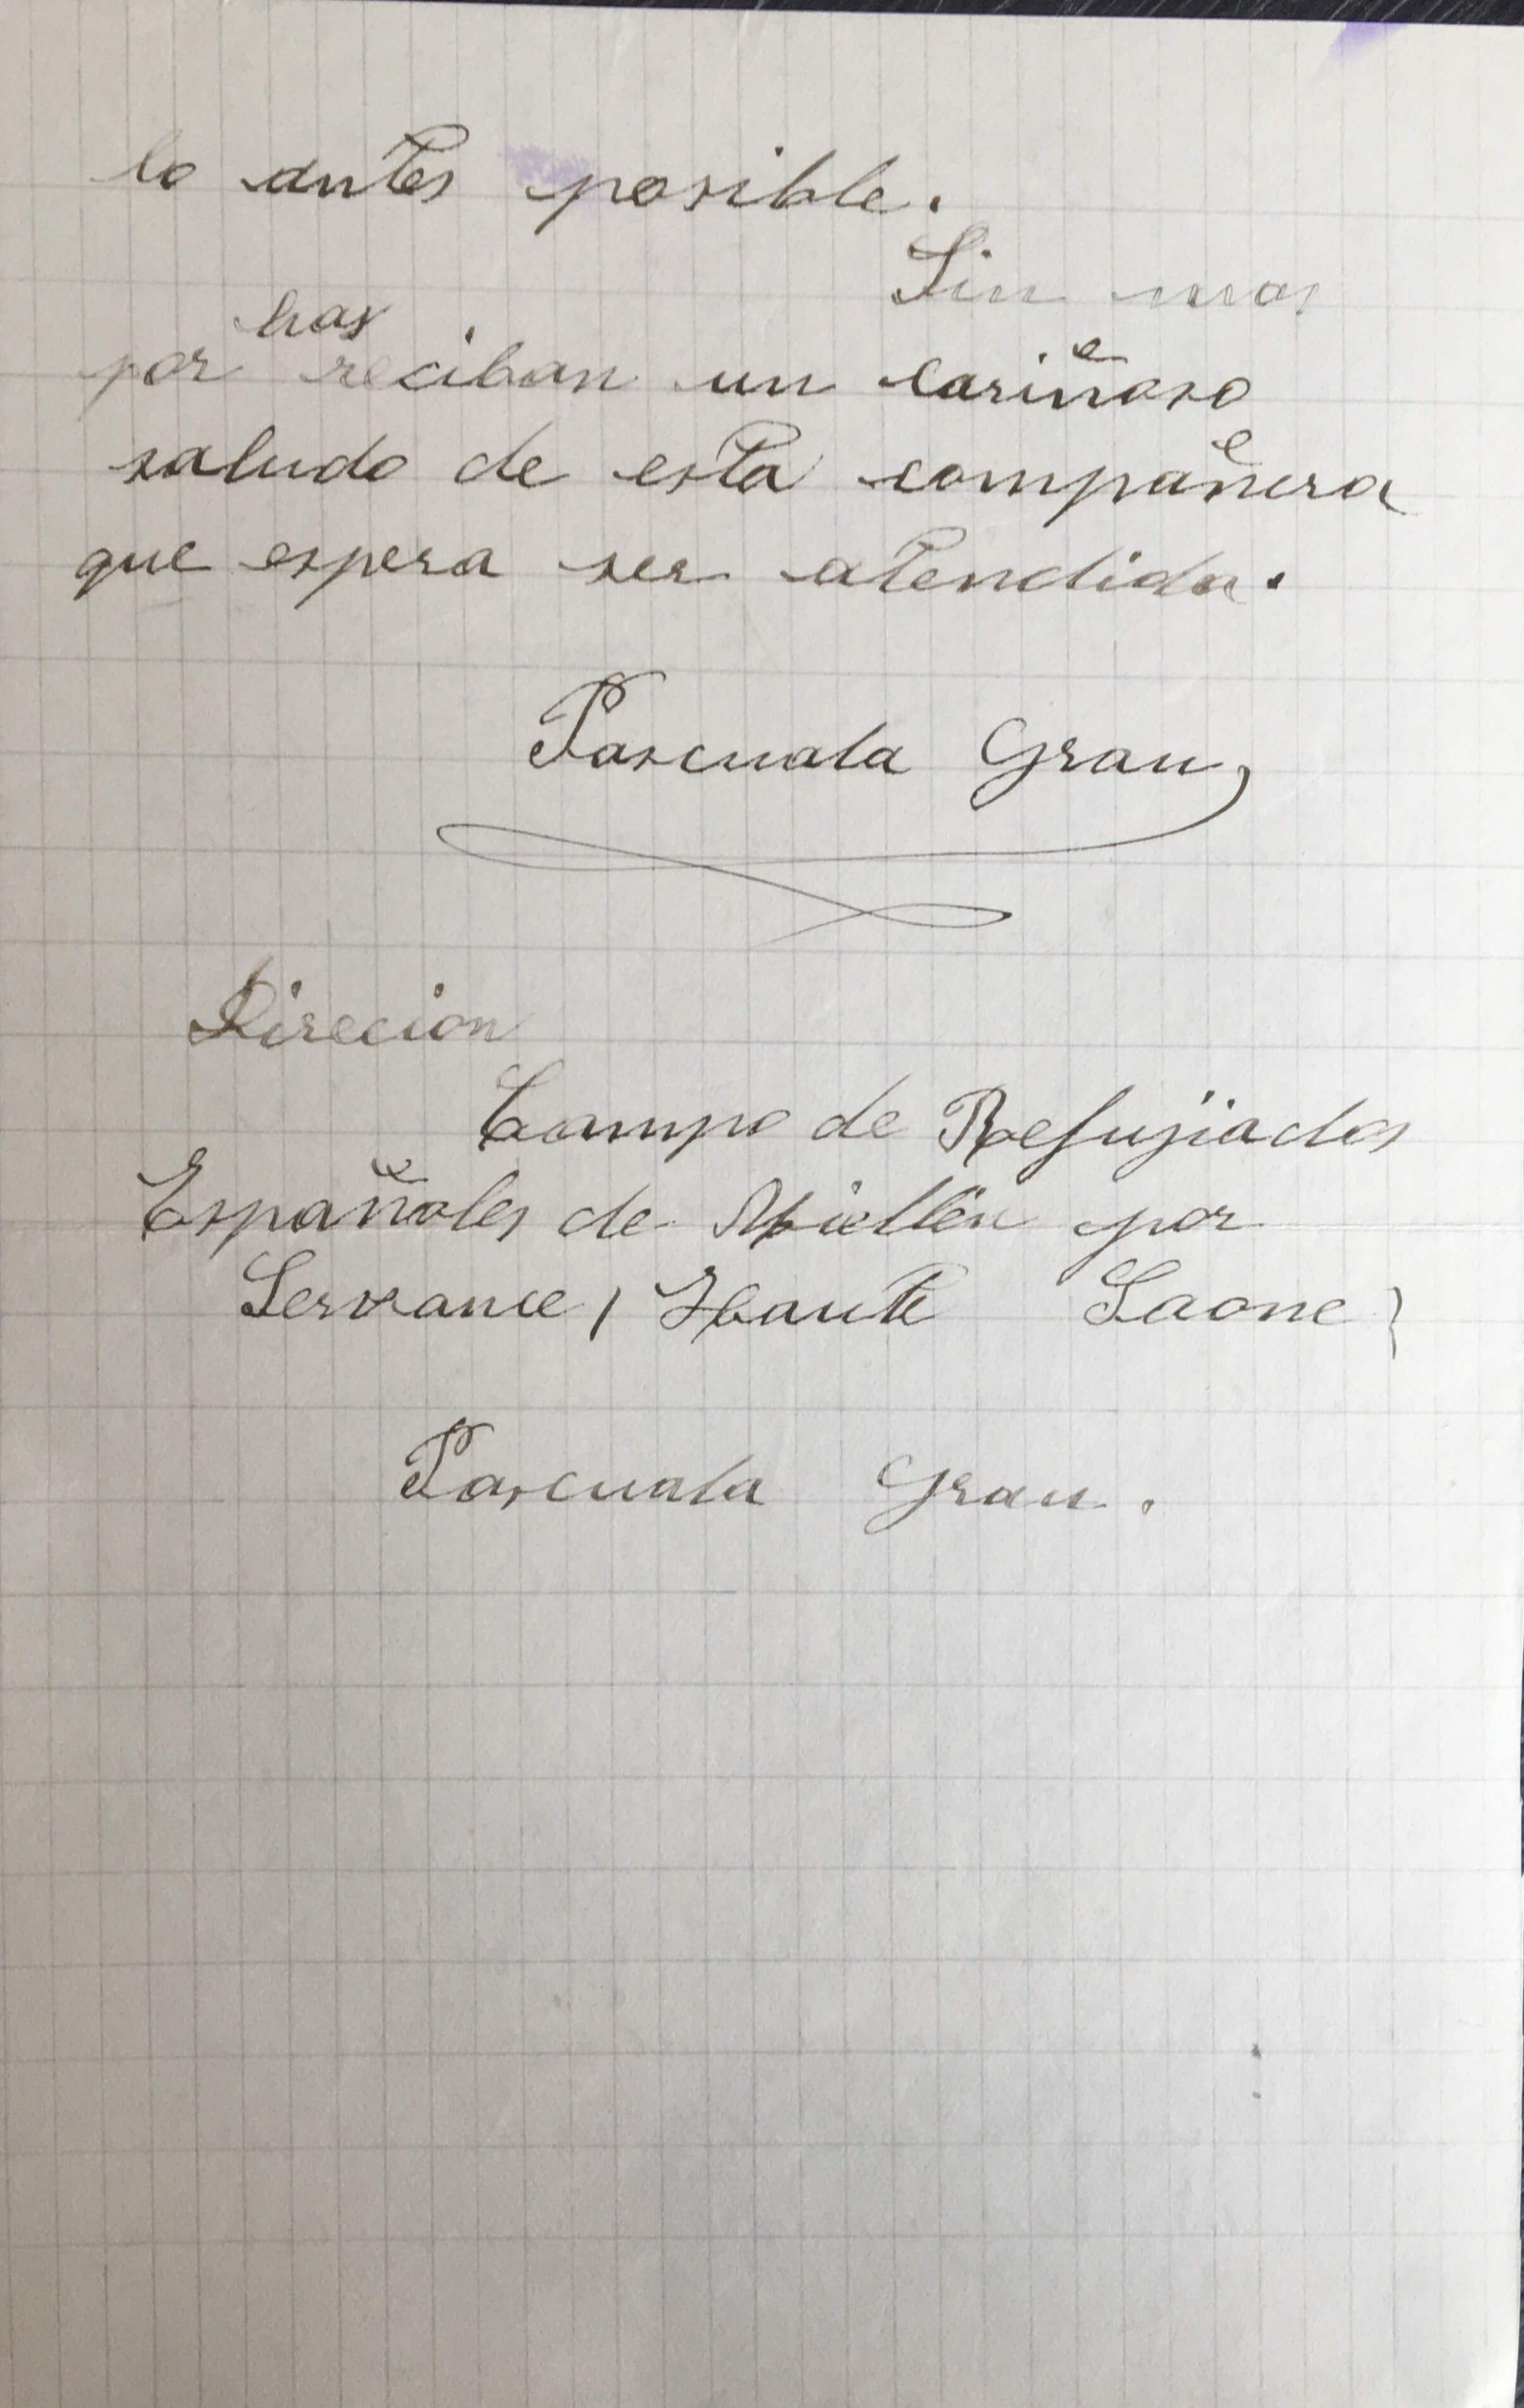 lo antes posible.
Sin mas
por hoy reciban un cariñoso
saludo de esta compañera
que espera ser atendida.
Pascuala Grau
Direcion
Campo de Refujiados
Españoles de Miellen por
Servance (Haute Saone)
Pascuala Grau.